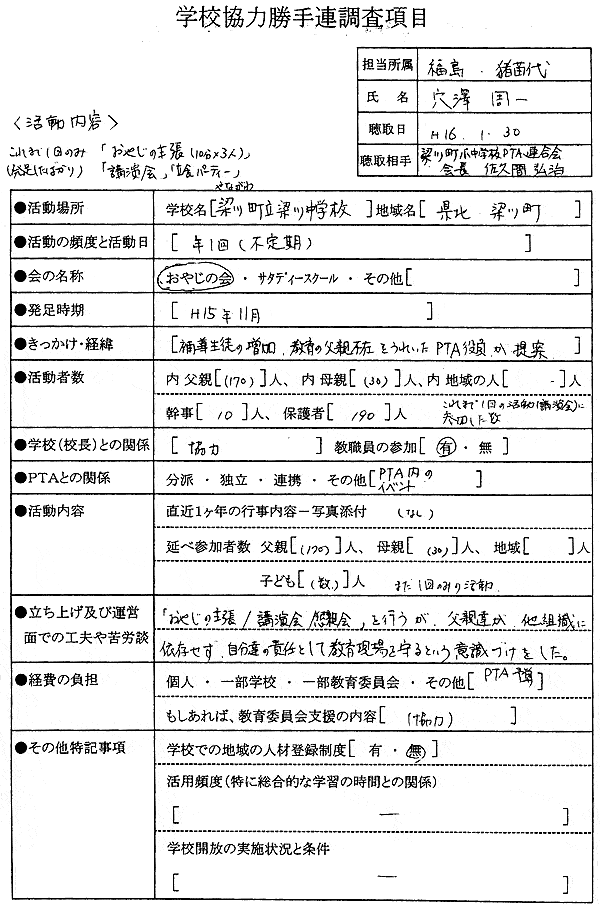 学校協力勝手連調査項目
担当所属 福島・猪苗代
氏名 穴澤 周一
聴取日 H16. 1. 30
聴取相手 梁川町小中学校PTA連合会
会長 佐久間弘治
〈活動内容〉
これまで1回のみ 「おやじの主張(10分×3人)」
(発足したばかり) 「講演会」「立食パーティー」
やながわ
●活動場所 学校名[梁川町立梁川中学校]地域名[県北 梁川町]
●活動の頻度と活動日 [年1回(不定期)]
●会の名称 おやじの会・サタディースクール・その他[ ]
●発足時期 [H15年11月]
●きっかけ・経緯 [補導生徒の増加、教育の父親不在をうれいたPTA役員が提案]
●活動者数 内 父親[(170)]人、内 母親[(30)]人、内 地域の人[ - ]人
幹事[10]人、保護者[190]人 これまで1回の活動(講演会)に
参加した数
●学校(校長)との関係 [協力] 教職員の参加[有・無]
●PTAとの関係 分派・独立・連携・その他[PTA内の
イベント]
●活動内容 直近1ヶ年の行事内容-写真添付 (なし)
延べ参加者数 父親[(170)]人、母親[(30)]人、地域[ ]人
子ども[(数)]人 まだ1回のみの活動
●立ち上げ及び運営 「おやじの主張/講演会/懇親会」を行うが、父親達が、他組織に
面での工夫や苦労談 依存せず、自分達の責任として教育現場を守るという意識づけをした。
●経費の負担 個人・一部学校・一部教育委員会・その他[PTA予算]
もしあれば、教育委員会支援の内容[(協力)]
●その他特記事項 学校での地域の人材登録制度[有・無]
活用頻度(特に総合的な学習の時間との関係)
[ ー ]
学校開放の実施状況と条件
[ ー ]